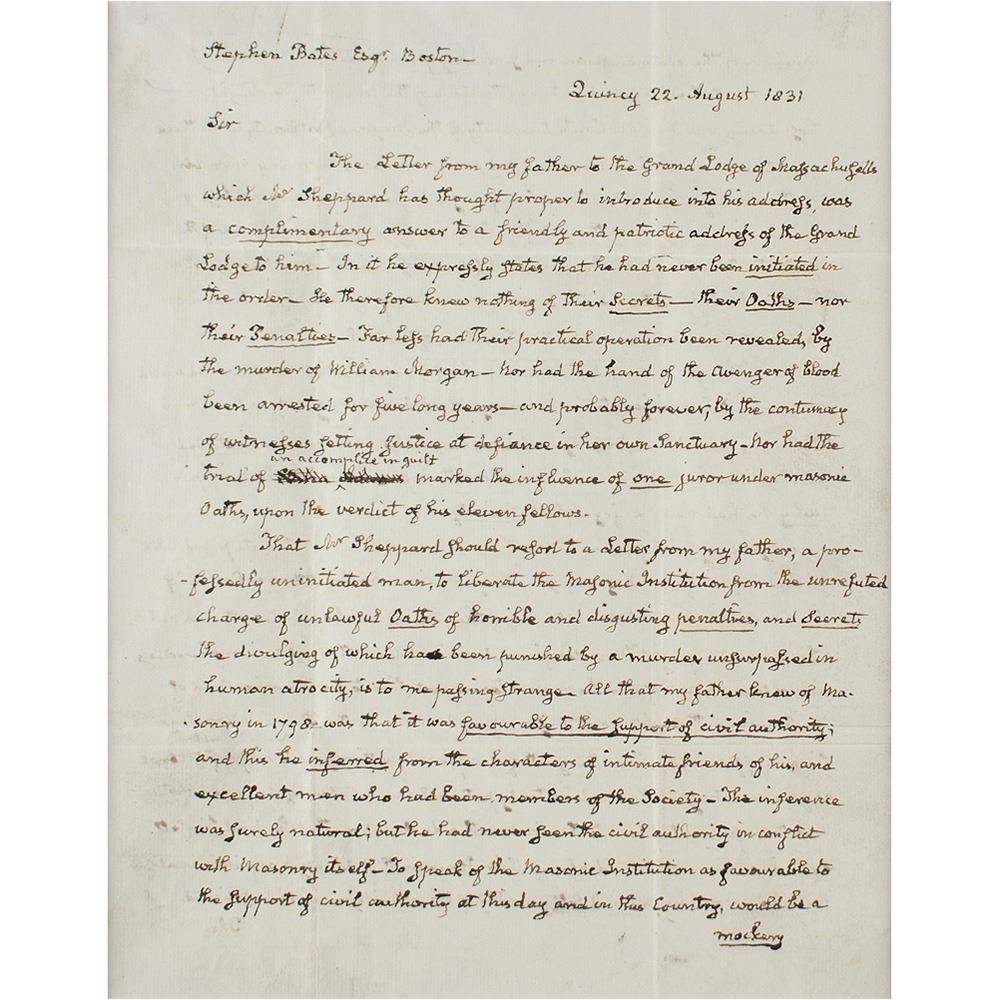 Stephen Bates Esqr. Boston—
Quincy 22. August 1831
Sir
The Letter from my father to the Grand Lodge of Maſsachuſetts
which Mr Sheppard has thought proper to introduce into his addreſs, was
a complimentary answer to a friendly and patriotic addreſs of the Grand
Lodge to him— In it he expreſsly ſtates that he had never been initiated in
the order— He therefore knew nothing of their Secrets— their Oaths— nor
their Penalties— Far leſs had their practical operation been revealed, by
the murder of William Morgan— Nor had the hand of the Avenger of blood
been arrested for five long years— and probably forever, by the contumacy
of witneſses ſetting Justice at defiance in her own Sanctuary— Nor had the
an accomplice in guilt
trial of marked the influence of one juror under masonic
Oaths, upon the verdict of his eleven fellows.
That Mr Sheppard ſhould reſort to a Letter from my father, a pro-
-feſsedly uninitiated man, to liberate the Masonic Institution from the unrefuted
charge of unlawful Oaths of horrible and disgusting penalties, and Secrets
the divulging of which has been punished by a murder unſurpaſsed in
human atrocity, is to me paſsing ſtrange— All that my father knew of Ma-
-sonry in 1798 was that it was favourable to the ſupport of civil authority;
and this he inferred from the characters of intimate friends of his, and
excellent men who had been members of the Society— The inference
was ſurely natural; but he had never ſeen the civil authority in conflict
with Masonry itself— To ſpeak of the Masonic Institution as favourable to
the ſupport of civil authority at this day and in this Country, would be a
mockery